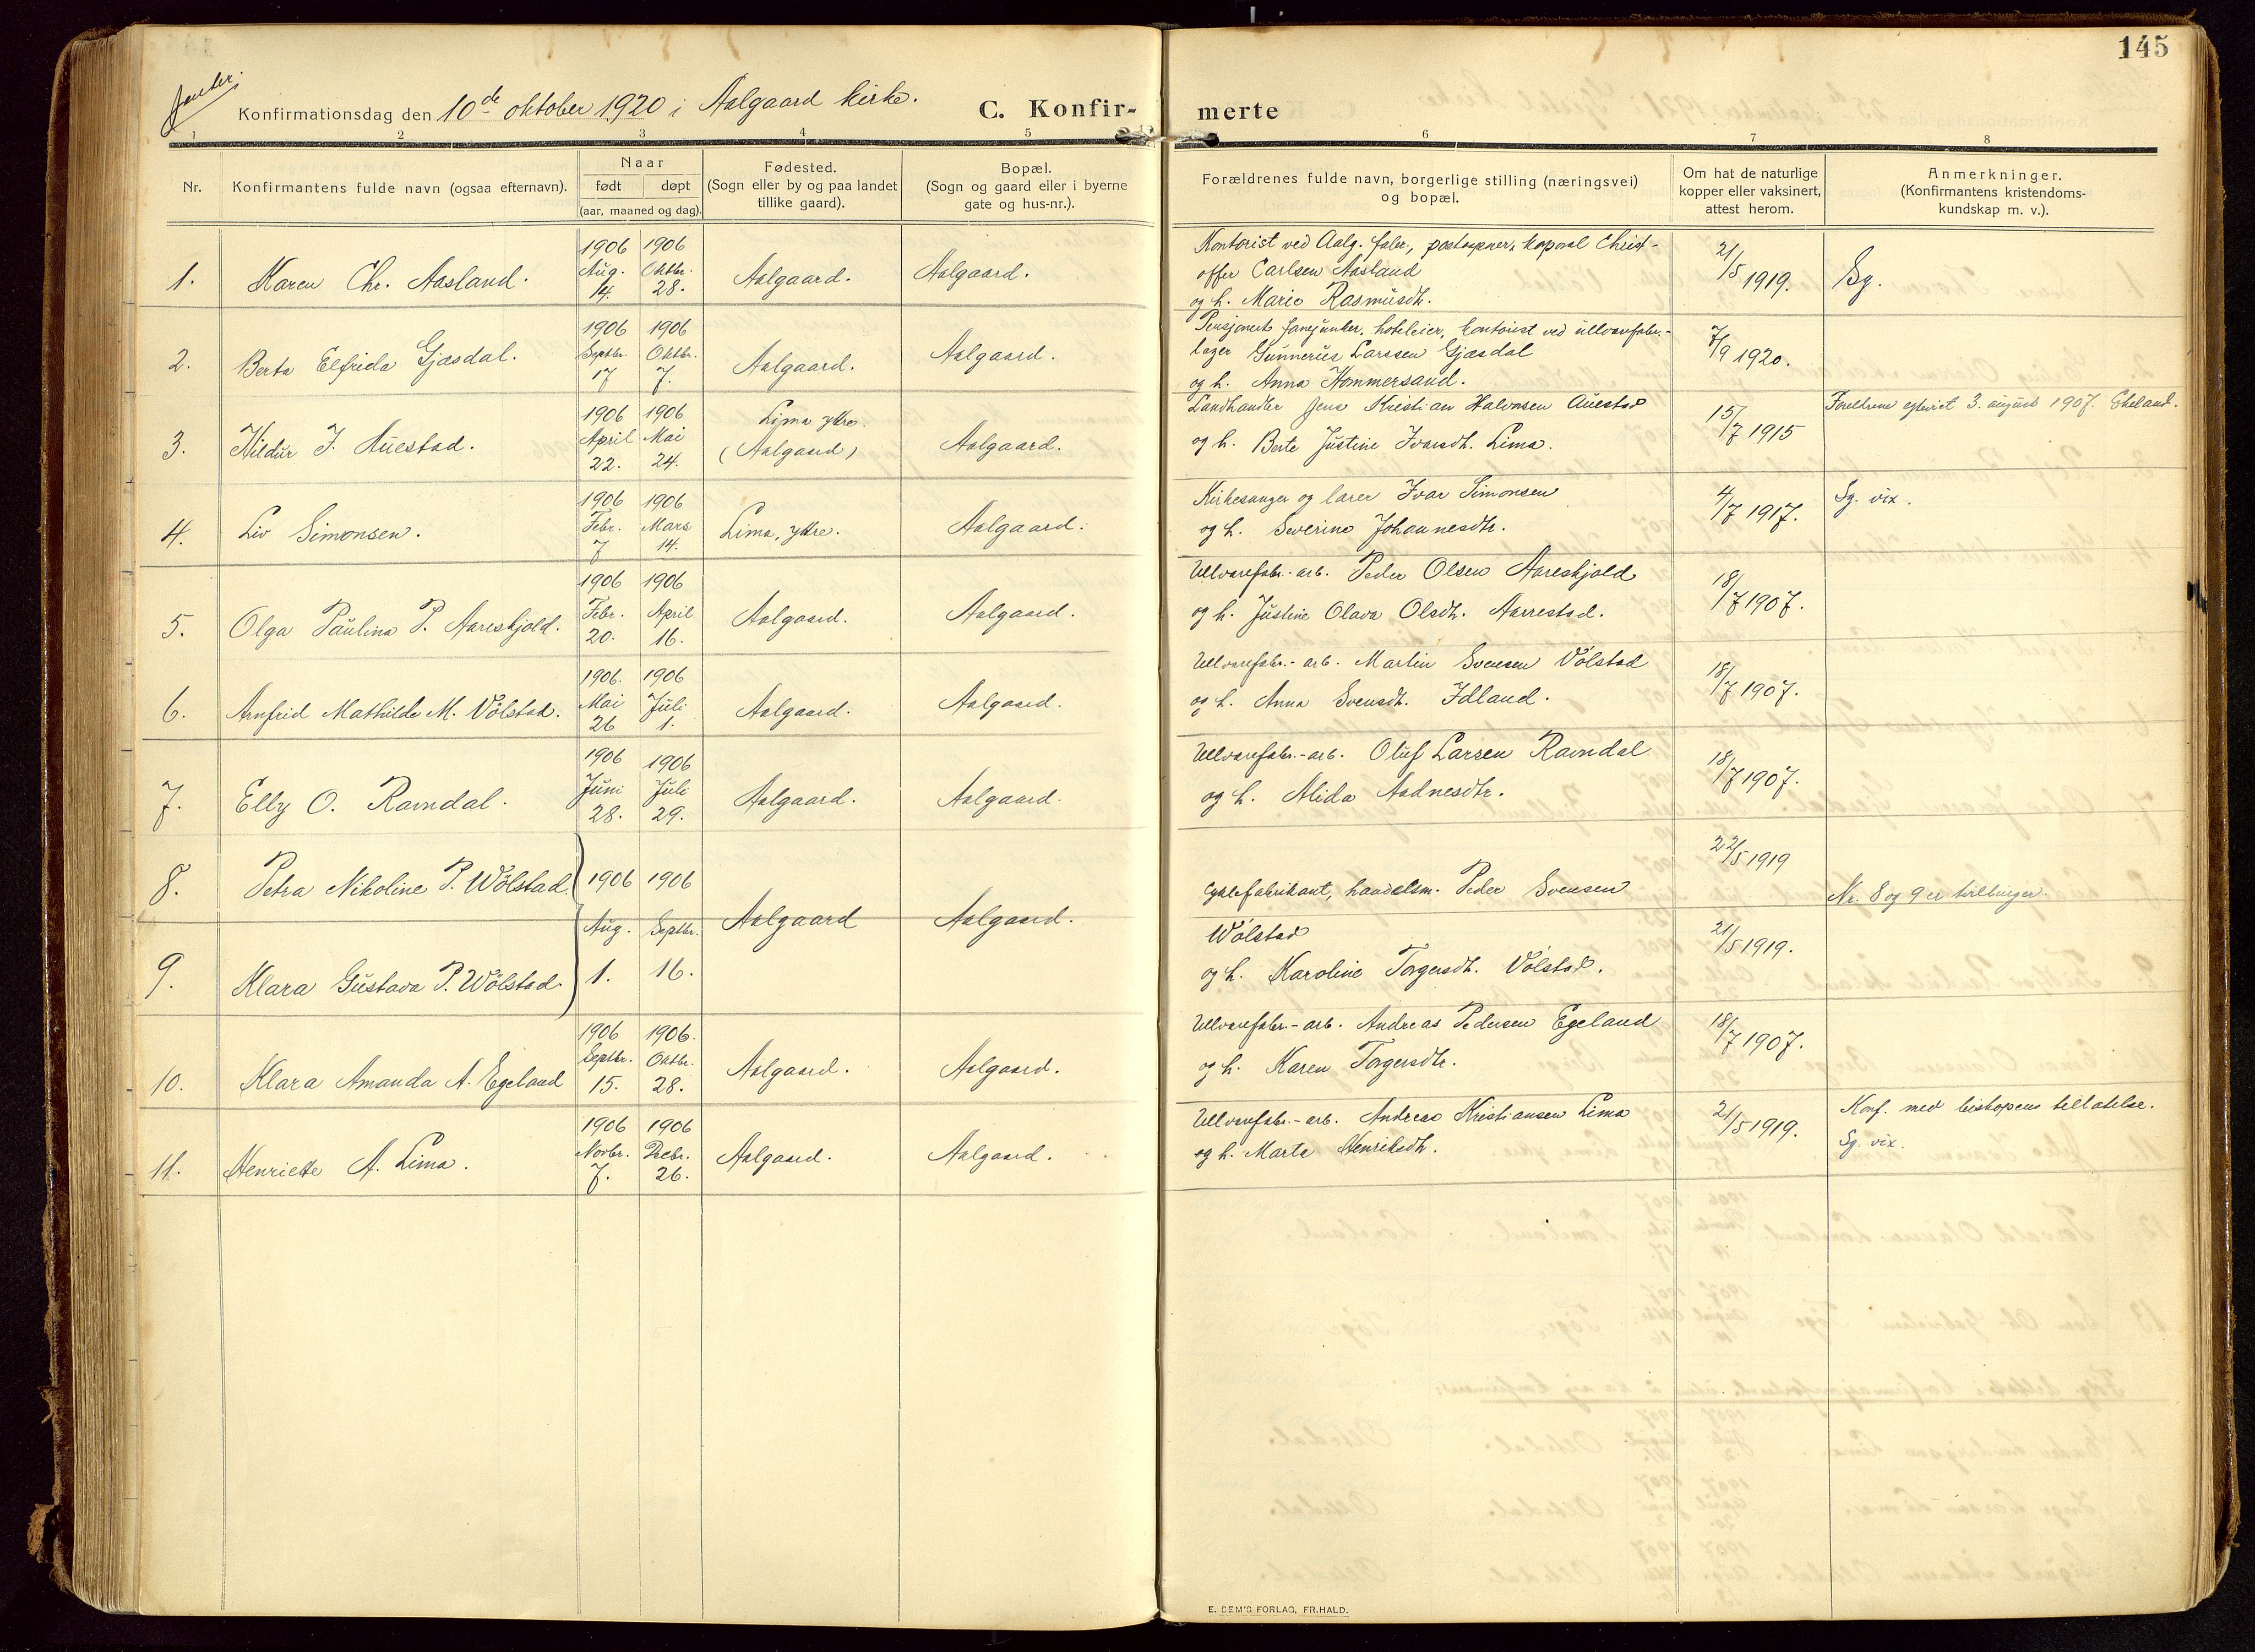 145
Jenter.
Konfirmationsdag den 10de oktober 1920 i Aalgaard kirke.
C. Konfir-
merte
1 2 3 4 5 6 7 8
Nr.
Konfirmantens fulde navn (ogsaa efternavn).
Naar
født døpt
(aar, maaned og dag).
Fødested.
(Sogn eller by og paa landet
tillike gaard).
Bopæl.
(Sogn og gaard eller i byerne
gate og hus-nr.).
Forældrenes fulde navn, borgerlige stilling (næringsvei)
og bopæl.
Om hat de naturlige
kopper eller vaksinert,
attest herom.
Anmerkninger.
(Konfirmantens kristendoms-
kundskap m. v.).
1. Karen Chr. Aasland.
1906 1906
Aug. Oktbr.
14. 28.
Aalgaard. Aalgaard.
Kontorist ved Aalg. fabr., postaapner, Christ-
offer Carlsen Aasland
og h. Marie Rasmusdtr.
21/5 1919.
Sg.
2. Berta Elfrida Gjæsdal.
1906 1906
Septbr. Oktbr.
17 7.
Aalgaard. Aalgaard.
Pensjonert fanejunker, hoteleier, kontorist ved ullvarefabr.-
lager Gunnerius Larssen Gjæsdal
og h. Anna Hommersand.
7/9 1920.
3. Hildur J. Auestad.
1906 1906
April Mai
22. 24.
Lima ytre.
(Aalgaard)
Aalgaard.
Landhandler Jens Kristian Halvorsen Auestad
og h. Berte Justine Ivarsdtr. Lima.
15/7 1915
3. august 1907.
4. Liv Simonsen.
1906 1906
Febr. Mars
7 14.
Lima, ytre. Aalgaard.
Kirkesanger og lærer Ivar Simonsen
og h. Severine Johannesdtr.
4/7 1917.
Sg. vix.
5. Olga Paulina P. Aareskjold.
1906 1906
Febr. April
20. 16.
Aalgaard. Aalgaard.
Ullvarefabr.-arb. Peder Olsen Aareskjold
og h. Justine Olava Olsdtr. Aarrestad.
18/7 1907.
6. Arnfrid Mathilde M. Völstad.
1906. 1906
Mai Juli
26 1.
Aalgaard. Aalgaard.
Ullvarefabr.-arb. Martin Svensen Völstad
og h. Anna Svensdtr. Idland.
18/7 1907.
7. Elly O. Ravndal.
1906 1906
Juni Juli
28. 29.
Aalgaard. Aalgaard.
Ullvarefabr.-arb. Oluf Larsen Ravndal
og h. Alida Aadnesdtr.
18/7 1907.
8. Petra Nikoline P. Wölstad
1906 1906
22/5 1919
Cyklefabrikant, handelsm. Peder Svensen
Nr. 8 og 9 er tvillinger.
Aug. Septbr.
Aalgaard Aalgaard.
Wölstad
21/5 1919.
9. Klara Gustava P. Wölstad.
1. 16.
og h. Karoline Torgersdtr. Völstad.
10. Klara Amanda A. Egeland
1906 1906.
Septbr. Oktbr.
15. 28.
Aalgaard. Aalgaard.
Ullvarefabr.-arb. Andreas Pedersen Egeland
og h. Karen Torgersdtr.
18/7 1907.
11. Henriette A. Lima.
1906 1906
Novbr. Decbr.
7. 26.
Aalgaard. Aalgaard.
Ullvarefabr.-arb. Andreas Kristiansen Lima
og h. Marta Henriksdtr.
21/5 1919.
Konf. med biskopens tillatelse.
Sg. vix.
E. SEM'S FORLAG, FR.HALD.